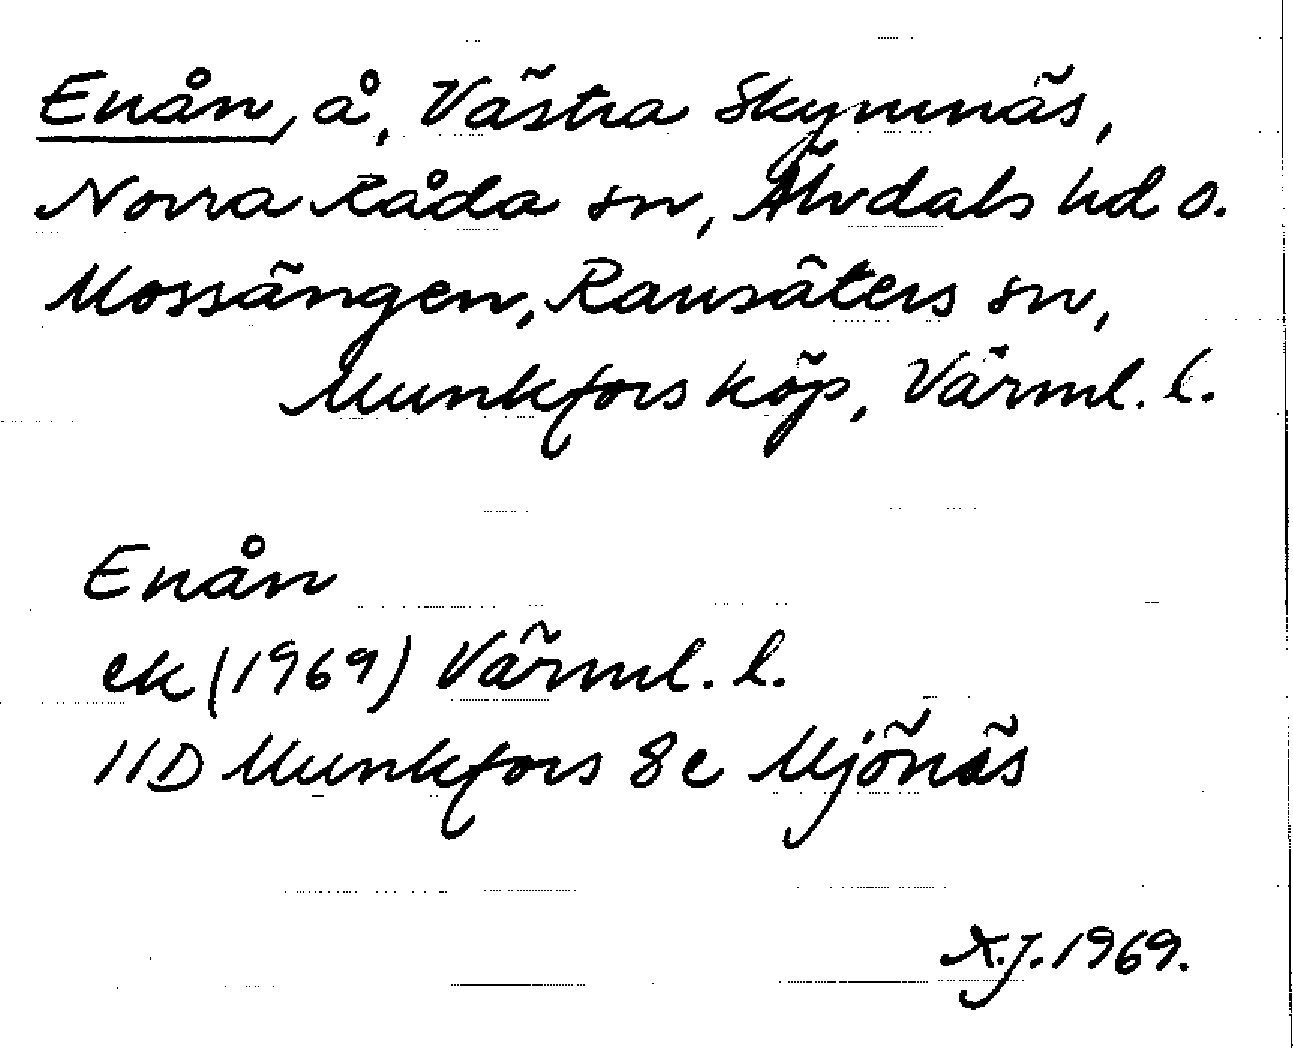 Enån, å, Västra Skymnäs,
Norra Råda sn, Älvdals hd o.
Mossängen, Ransäters sn,
Munkfors köp, Värml. l.
Enån
ek (1969) Värml. l.
11D Munkfors 8c Mjönäs
X.J. 1969.